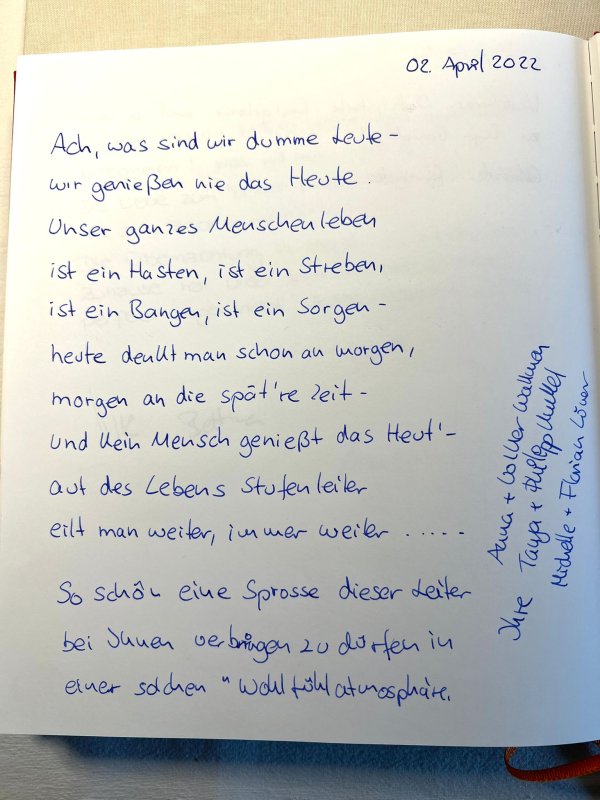 02. April 2022
Ach, was sind wir dumme Leute -
wir genießen nie das Heute.
Unser ganzes Menschenleben
ist ein Hasten, ist ein Streben,
ist ein Bangen, ist ein Sorgen -
heute denkt man schon an morgen,
morgen an die spät're Zeit -
und kein Mensch genießt das Heut' -
auf des Lebens Stufenleiter
eilt man weiter, immer weiter .....
So schön eine Sprosse dieser Leiter
bei Ihnen verbringen zu dürfen in
einer solchen "Wohlfühlatmosphäre.
Ihre Anna + Volker
Tanja + Philipp
Michelle + Florian